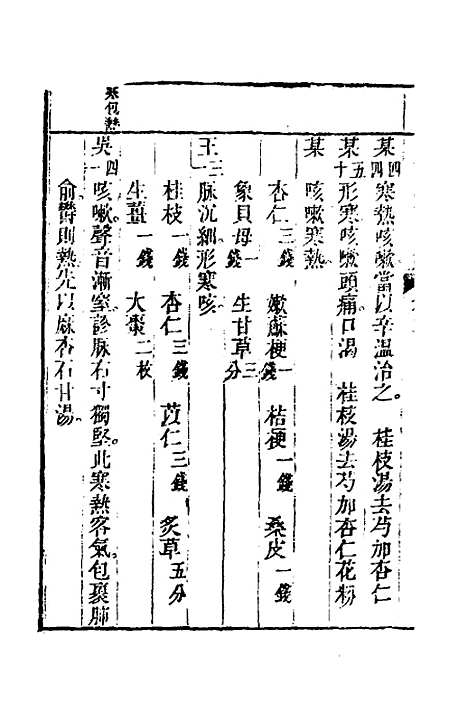 某四四 寒熱咳嗽當以辛溫治之。 桂枝湯去芍加杏仁
某五十 形寒咳嗽頭痛口渴 桂枝湯去芍加杏仁花粉
某 咳嗽寒熱
杏仁三錢 嫩蘇梗一錢 桔梗一錢 桑皮一錢
象貝母一錢 生甘草三分
王三一 脉沉細形寒咳
桂枝一錢 杏仁三錢 苡仁三錢 炙草五分
生薑一錢 大棗二枚
寒包熱
吳四一 咳嗽聲音漸窒診脉右寸獨堅。此寒熱客氣包裹肺
俞鬱則熱先以麻杏石甘湯。